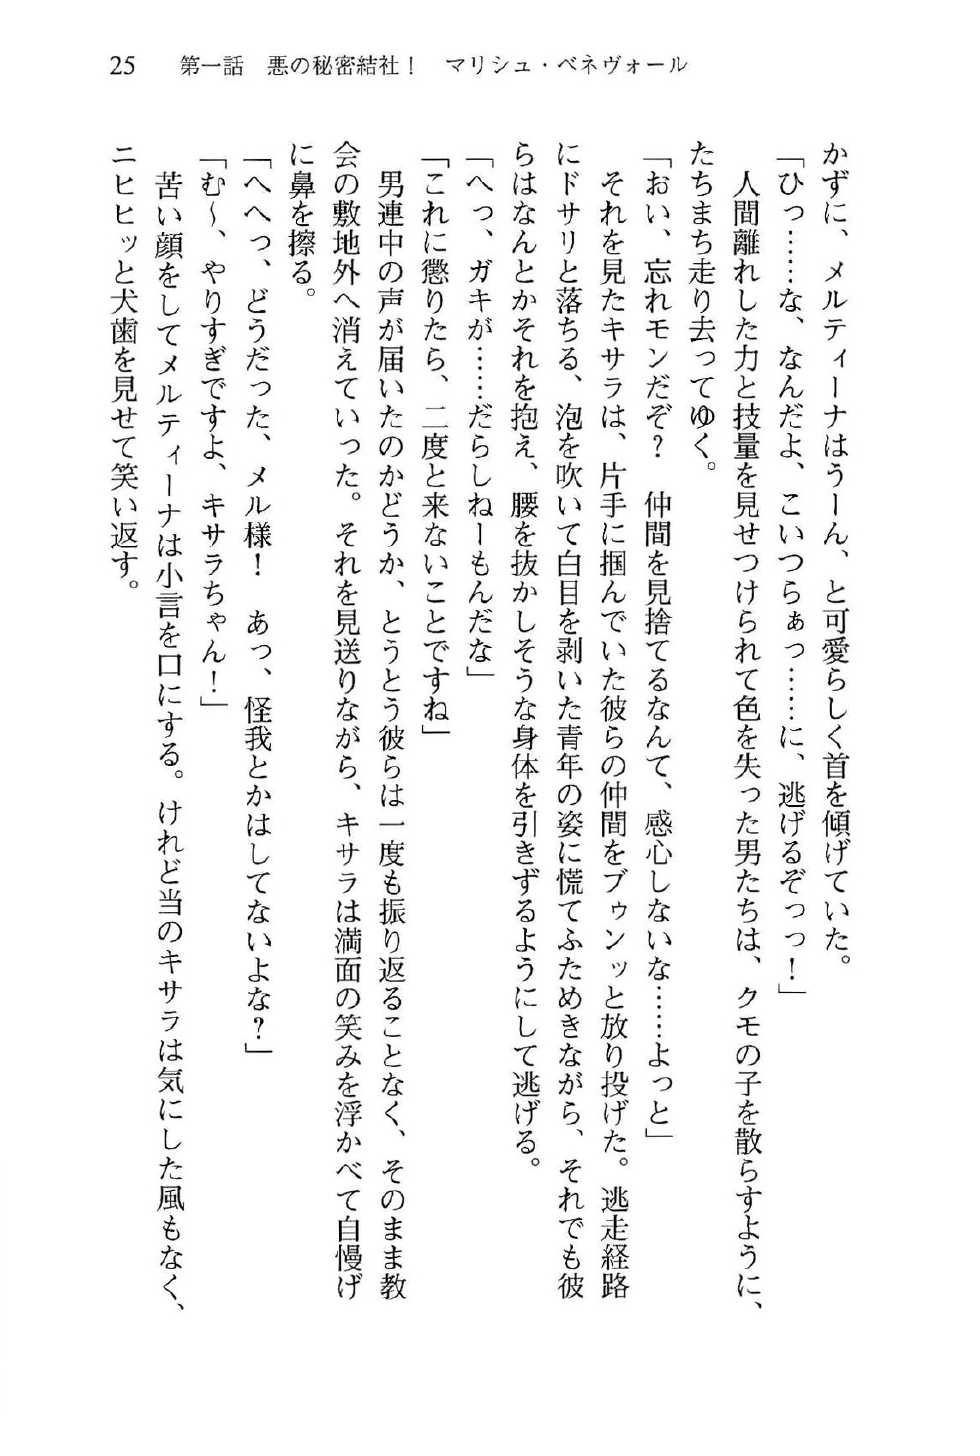 25　第一話　悪の秘密結社！　マリシュ・ベネヴォール
かずに、メルティーナはうーん、と可愛らしく首を傾げていた。
「ひっ……な、なんだよ、こいつらぁっ……に、逃げるぞっっ！」
　人間離れした力と技量を見せつけられて色を失った男たちは、クモの子を散らすように、
たちまち走り去ってゆく。
「おい、忘れモンだぞ？　仲間を見捨てるなんて、感心しないな……よっと」
　それを見たキサラは、片手に掴んでいた彼らの仲間をブゥンッと放り投げた。逃走経路
にドサリと落ちる、泡を吹いて白目を剥いた青年の姿に慌てふためきながら、それでも彼
らはなんとかそれを抱え、腰を抜かしそうな身体を引きずるようにして逃げる。
「へっ、ガキが……だらしねーもんだな」
「これに懲りたら、二度と来ないことですね」
　男連中の声が届いたのかどうか、とうとう彼らは一度も振り返ることなく、そのまま教
会の敷地外へ消えていった。それを見送りながら、キサラは満面の笑みを浮かべて自慢げ
に鼻を擦る。
「へへっ、どうだった、メル様！　あっ、怪我とかはしてないよな？」
「む～、やりすぎですよ、キサラちゃん！」
　苦い顔をしてメルティーナは小言を口にする。けれど当のキサラは気にした風もなく、
ニヒヒッと犬歯を見せて笑い返す。